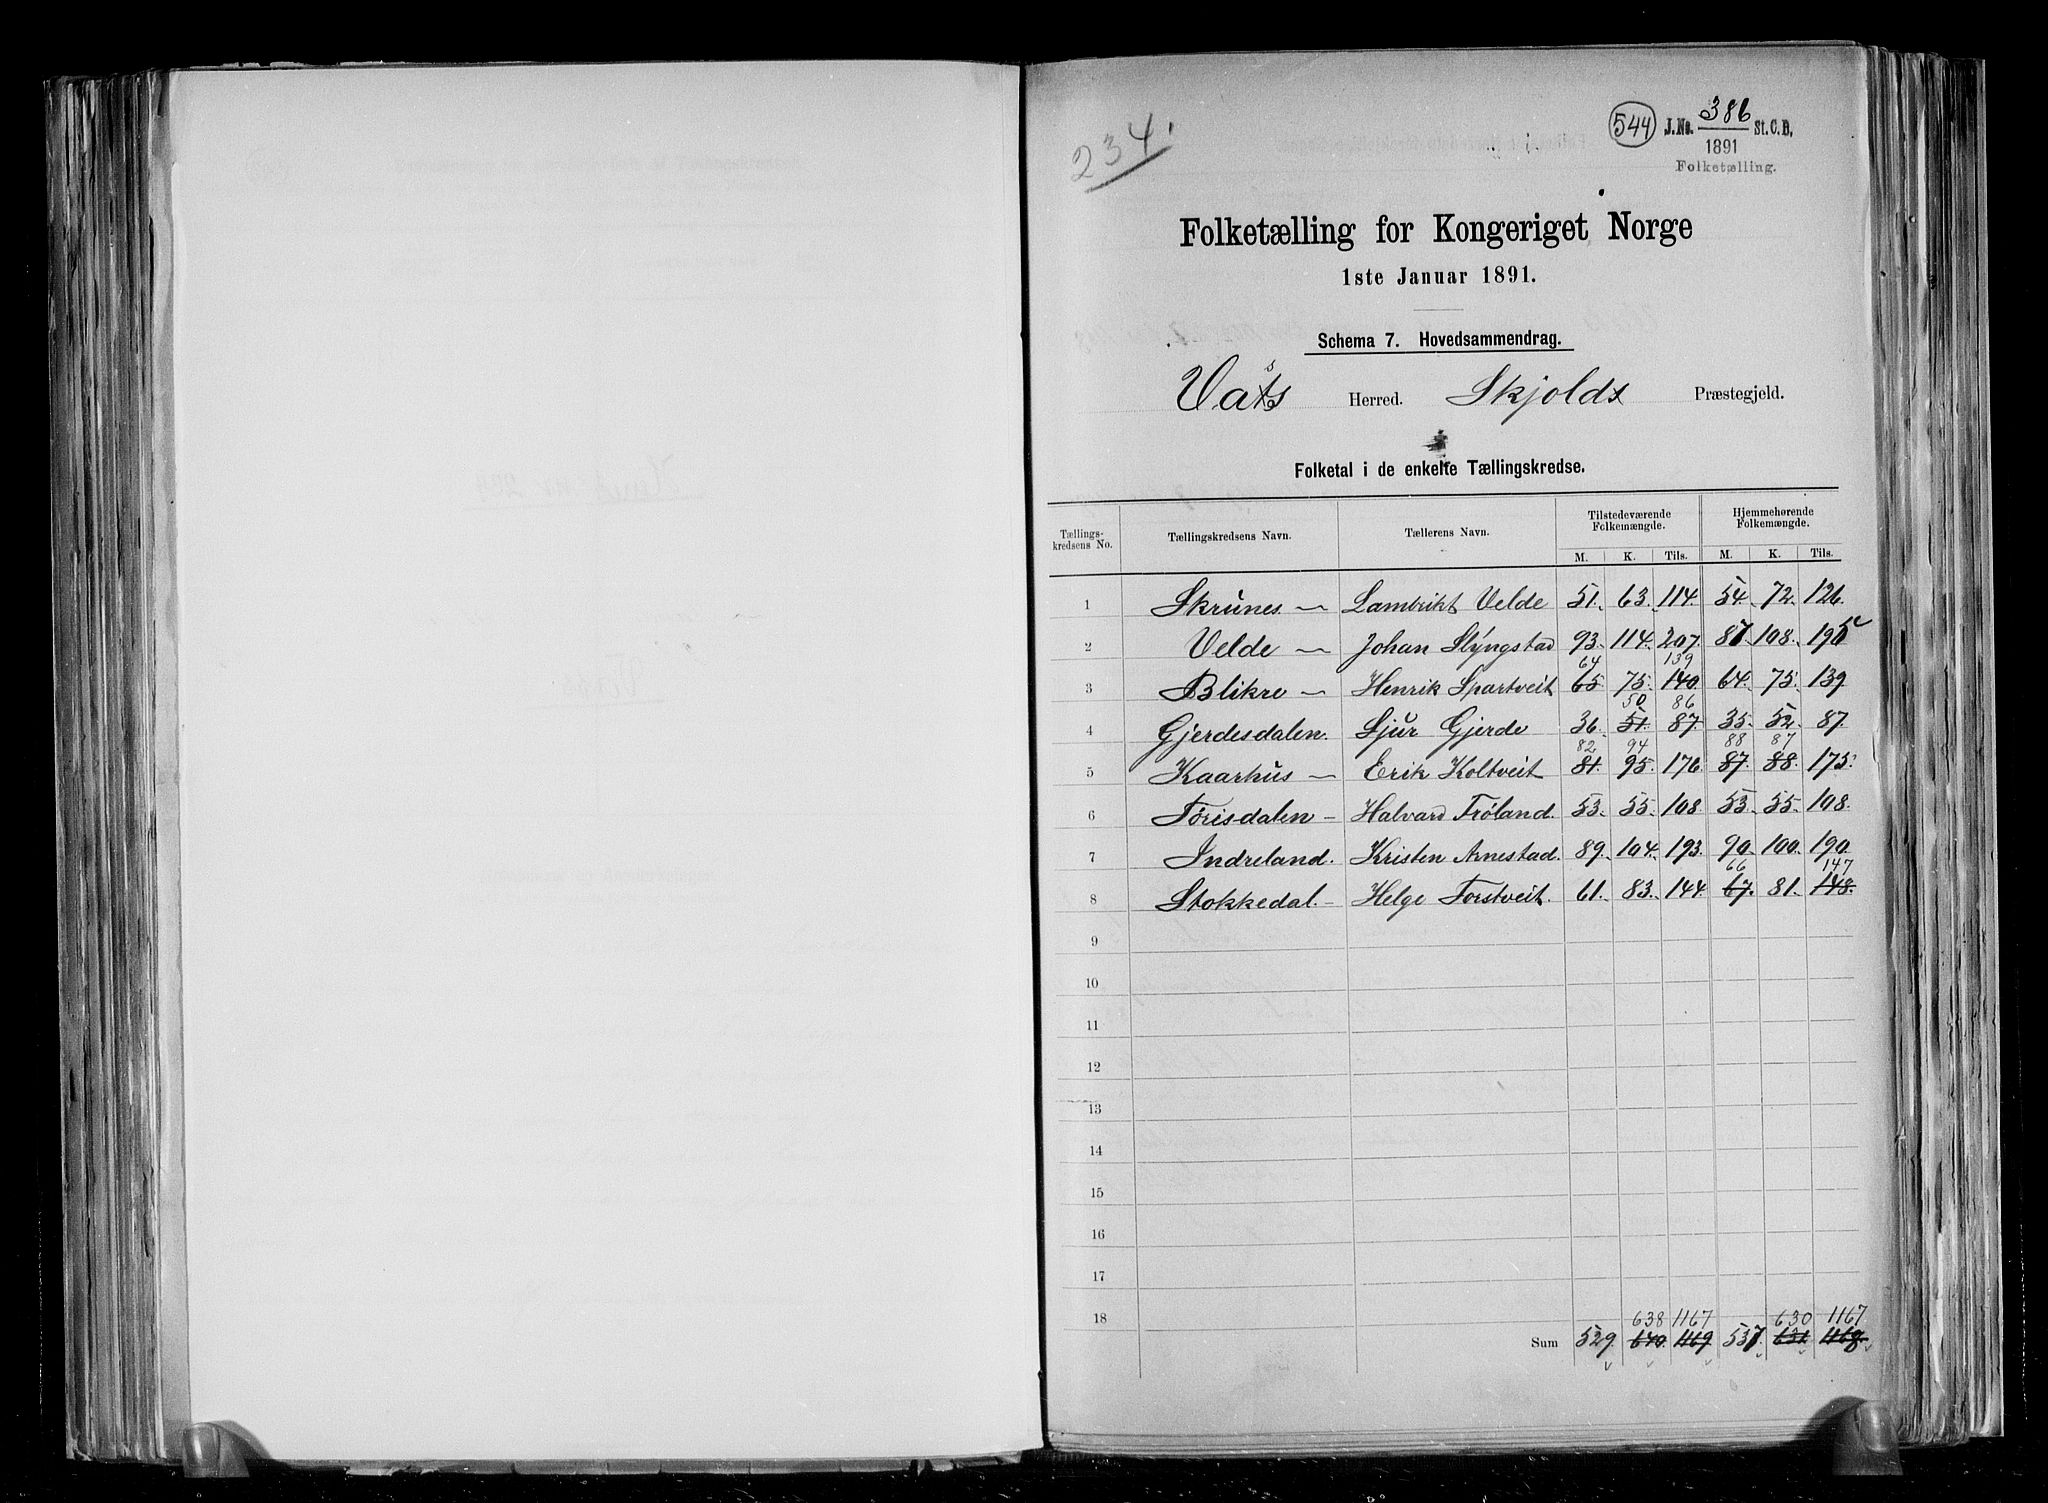 234.
544 J.No. 386 St.C.B.
1891
Folketælling.
Folketælling for Kongeriget Norge
1ste Januar 1891.
Schema 7. Hovedsammendrag.
Vats Herred. Skjolds Præstegjeld.
Folketal i de enkelte Tællingskredse.
Tællings-kredsens No. Tællingskredsens Navn. Tællerens Navn. Tilstedeværende Folkemængde. Hjemmehørende Folkemængde.
M. K. Tils. M. K. Tils.
1 Skrunes — Lambrikt Velde 51. 63. 114. 54. 72. 126.
2 Velde — Johan Slyngstad 93. 114. 207. 87. 108. 195
64 139
3 Blikre — Henrik Spartveit 65. 75. 140. 64. 75. 139.
50 86
4 Gjerdesdalen. Sjur Gjerde 36. 51. 87. 35. 52. 87.
82 94 88 87
5 Kaarhus — Erik Koltveit 81. 95. 176. 87. 88. 175.
6 Torisdalen — Halvard Frøland. 53. 55. 108. 53. 55. 108.
7 Indreland. Kristen Arnestad. 89. 104. 193. 90. 100. 190.
66 147
8 Stokkedal. — Helge Forstveit. 61. 83. 144. 67. 81. 148.
9
10
11
12
13
14
15
16
17
18
638 1167 630 1167
Sum 529. 640. 1169 537. 631 1168.